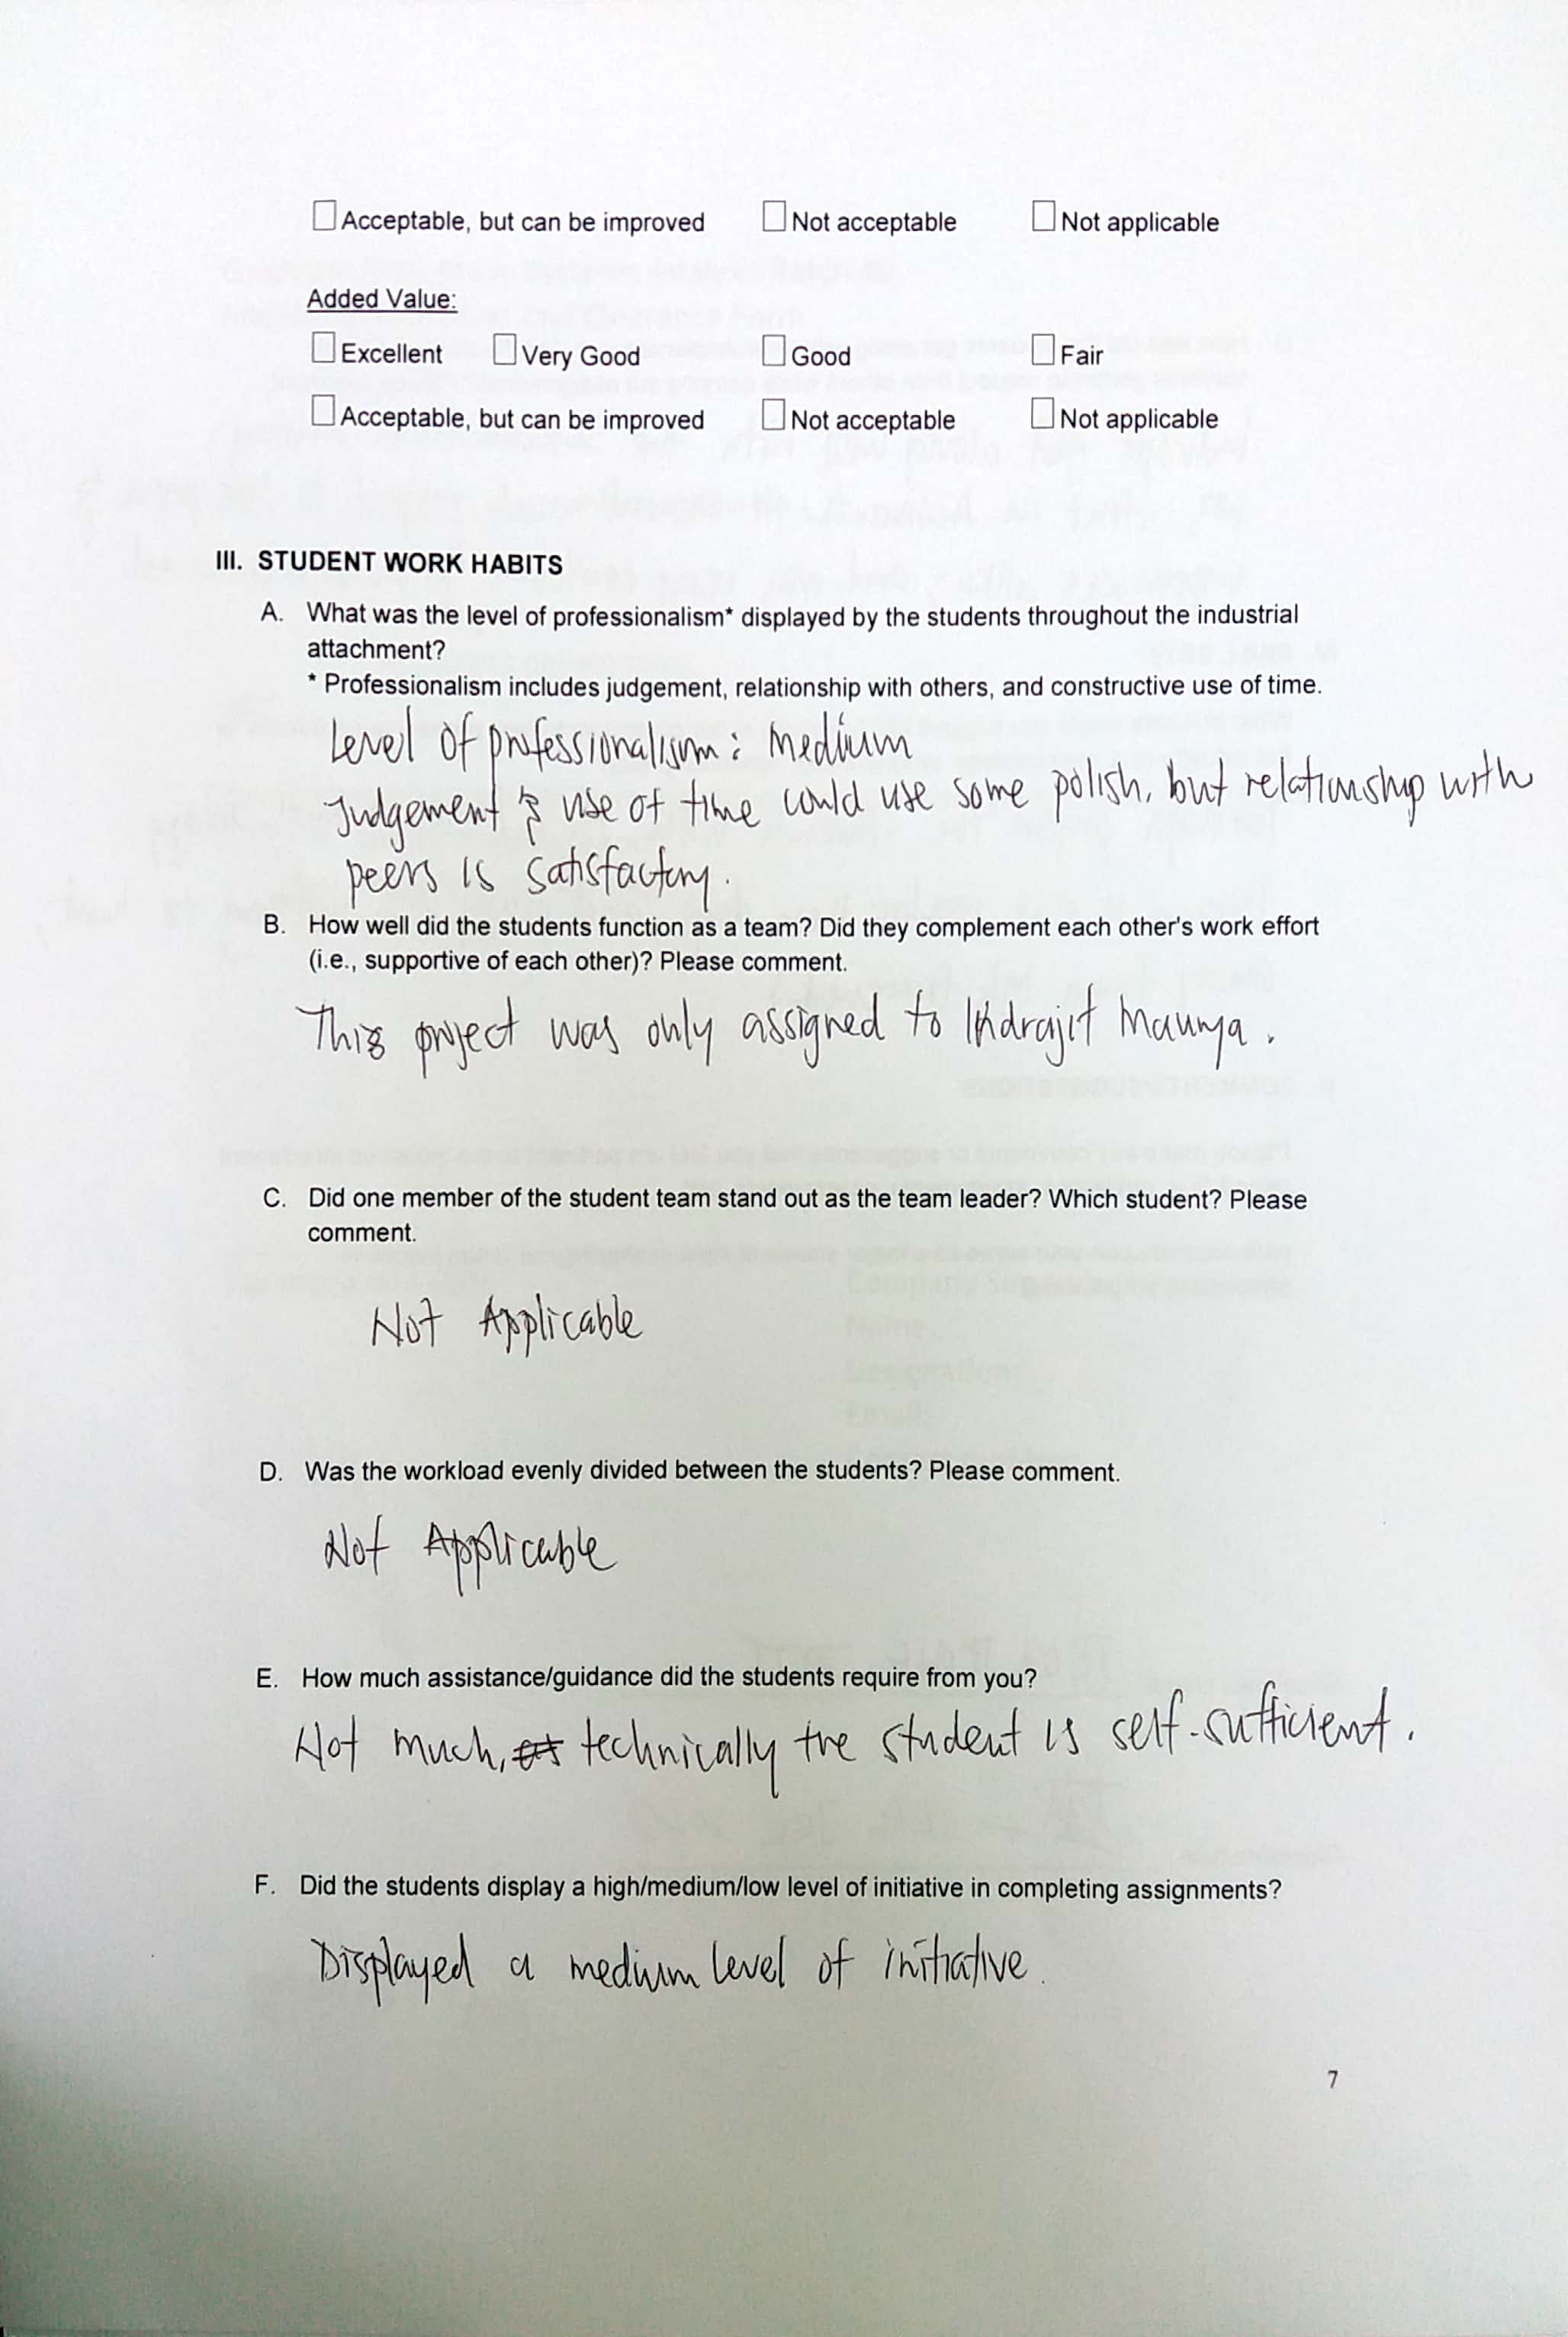 ☐ Acceptable, but can be improved ☐ Not acceptable ☐ Not applicable
Added Value:
☐ Excellent ☐ Very Good ☐ Good ☐ Fair
☐ Acceptable, but can be improved ☐ Not acceptable ☐ Not applicable
III. STUDENT WORK HABITS
A. What was the level of professionalism* displayed by the students throughout the industrial
attachment?
* Professionalism includes judgement, relationship with others, and constructive use of time.
Level of professionalism : Medium
Judgement & use of time could use some polish, but relationship with
peers is satisfactory.
B. How well did the students function as a team? Did they complement each other's work effort
(i.e., supportive of each other)? Please comment.
This project was only assigned to Indrajit Maurya.
C. Did one member of the student team stand out as the team leader? Which student? Please
comment.
Not Applicable
D. Was the workload evenly divided between the students? Please comment.
Not Applicable
E. How much assistance/guidance did the students require from you?
Not much, technically the student is self-sufficient.
F. Did the students display a high/medium/low level of initiative in completing assignments?
Displayed a medium level of initiative.
7